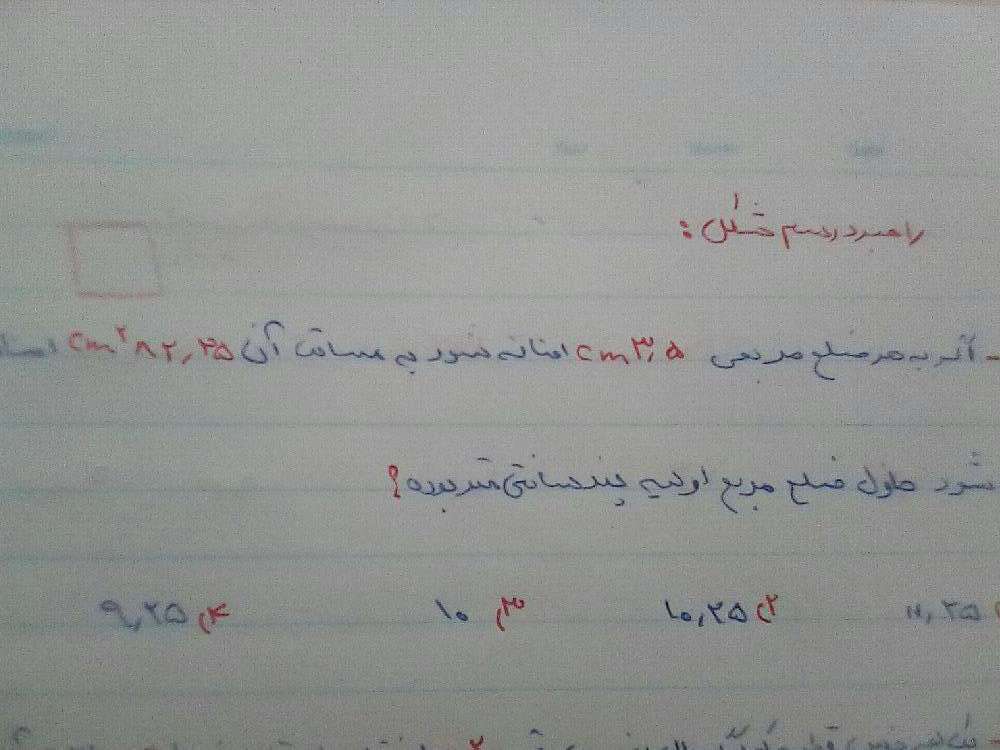 راهبرد رسم شکل:
- اگر به هر ضلع مربعی ۳٫۵ cm اضافه شود به مساحت آن ۸۲٫۲۵ cm²
شود طول ضلع مربع اولیه چند سانتی متر بوده؟
۱۱٫۲۵ ۲) ۱۰٫۲۵ ۳) ۱۰ ۴) ۹٫۲۵